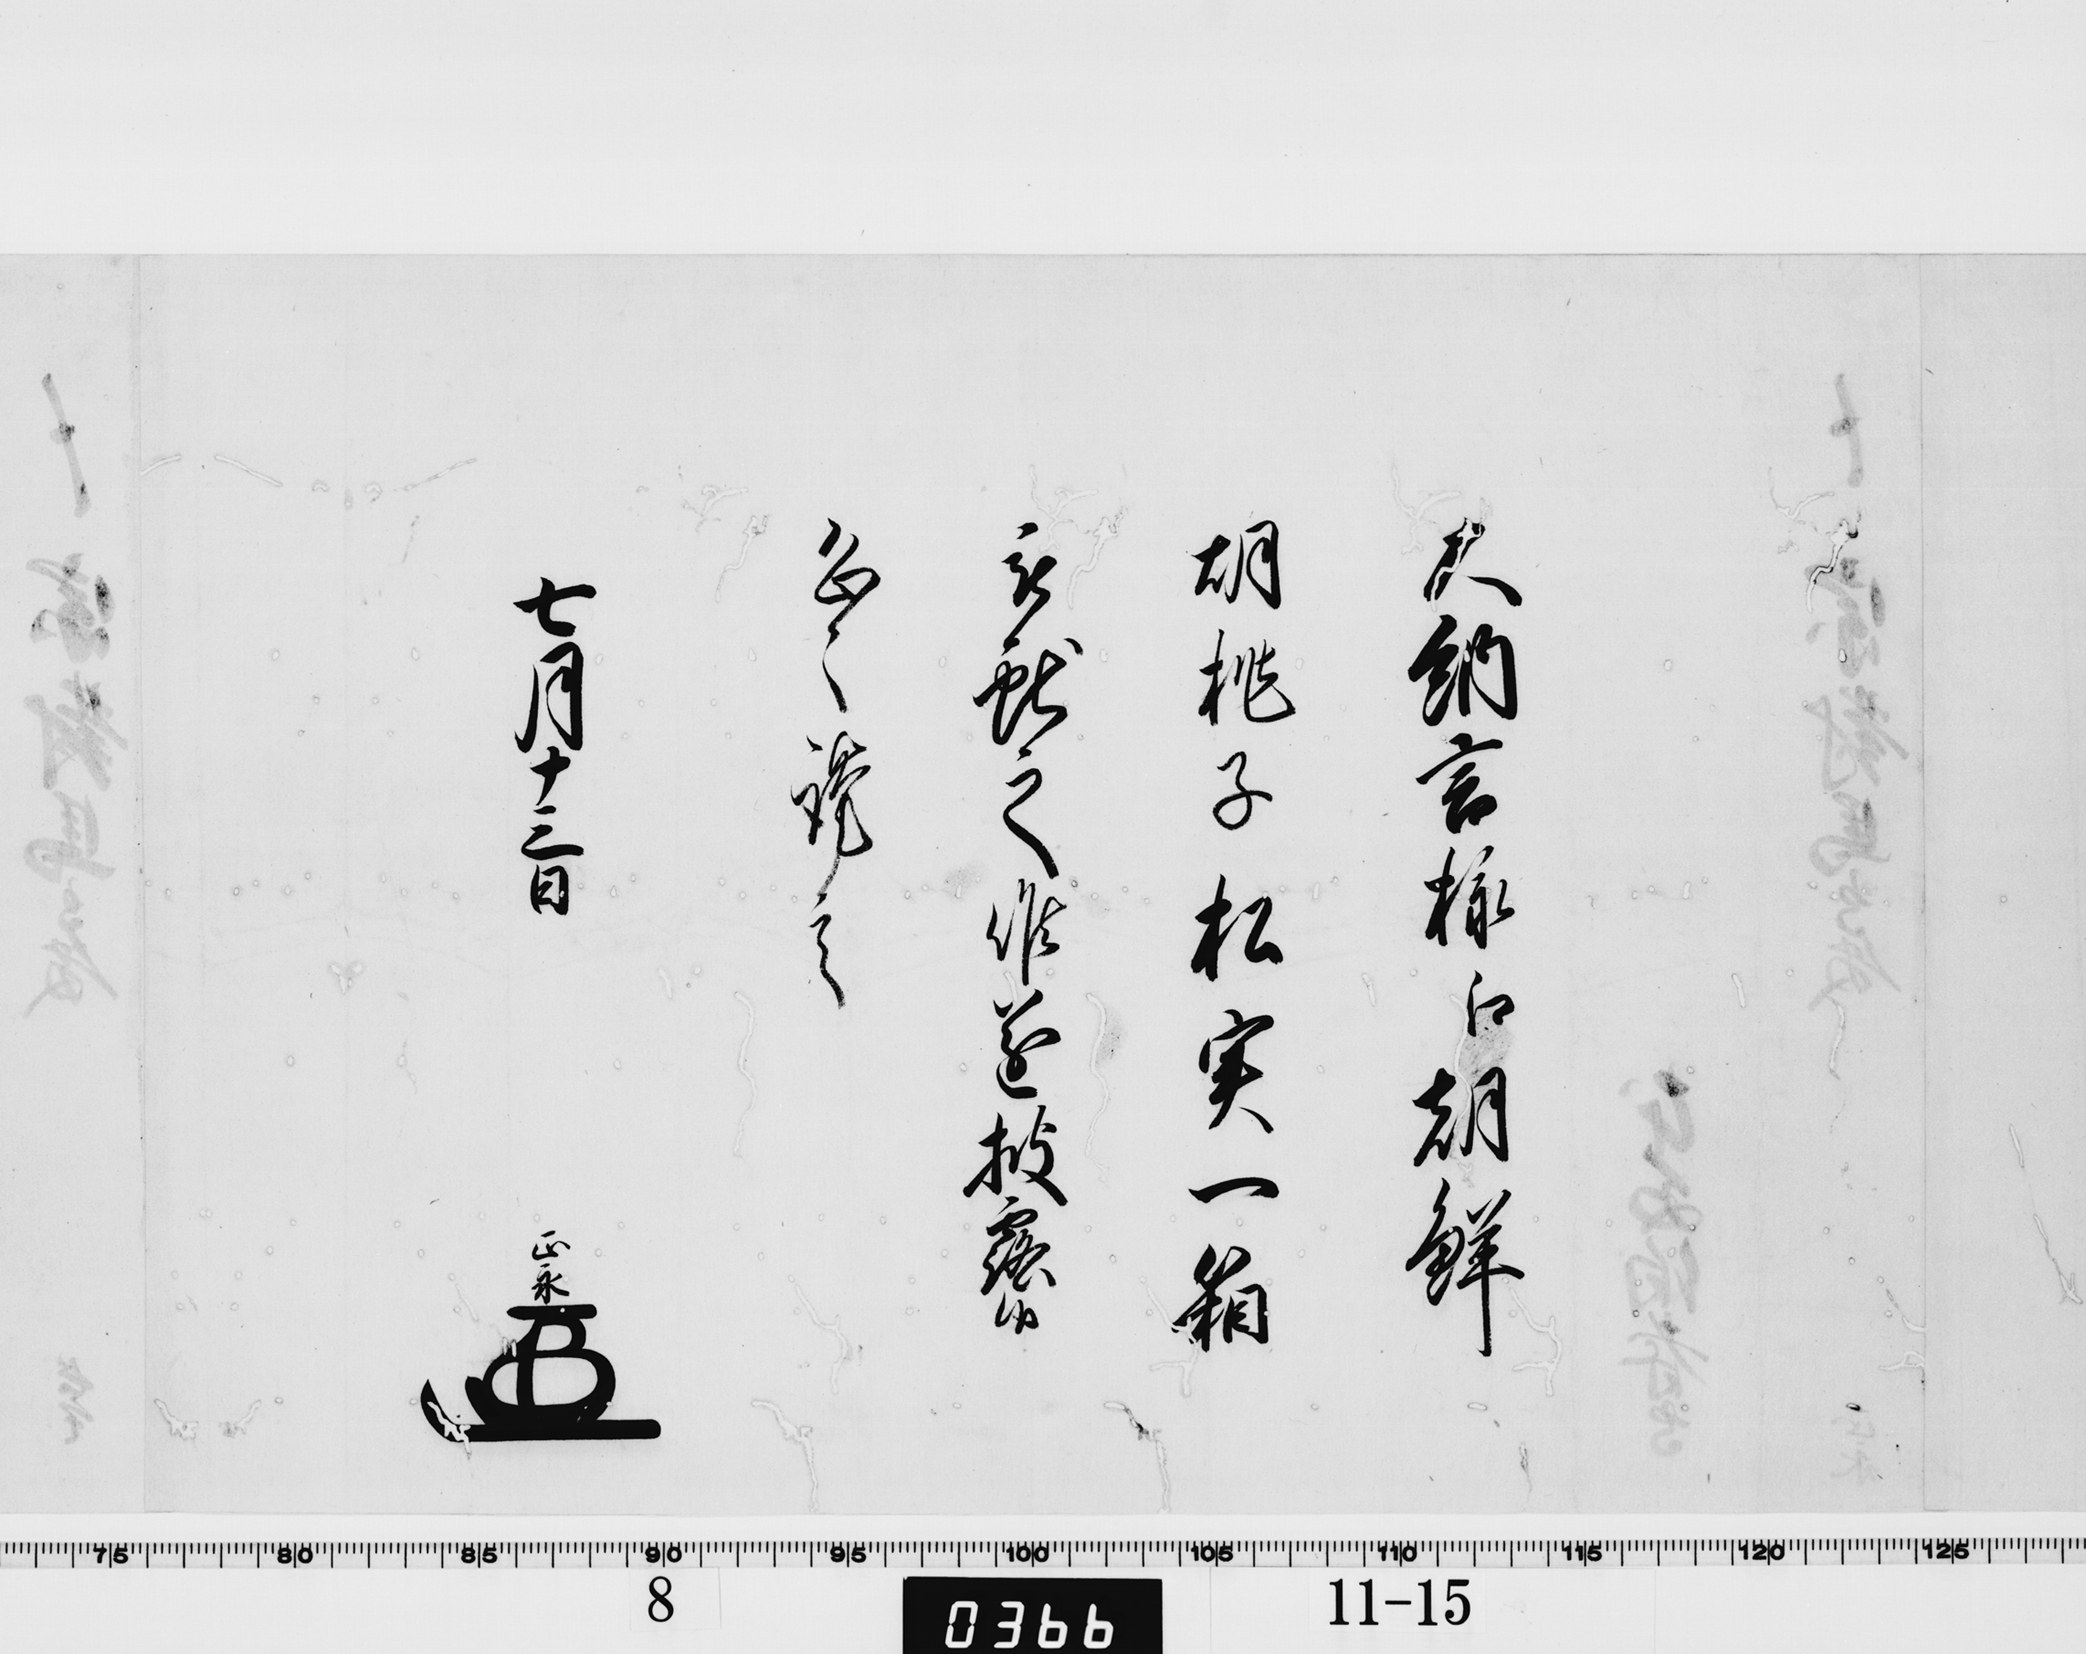 大納言様江朝鮮
胡桃子松実一箱
被献之候遂披露候
恐々謹言
七月十三日
正永
75 80 85 90 95 100 105 110 115 120 125
8
0366
11-15